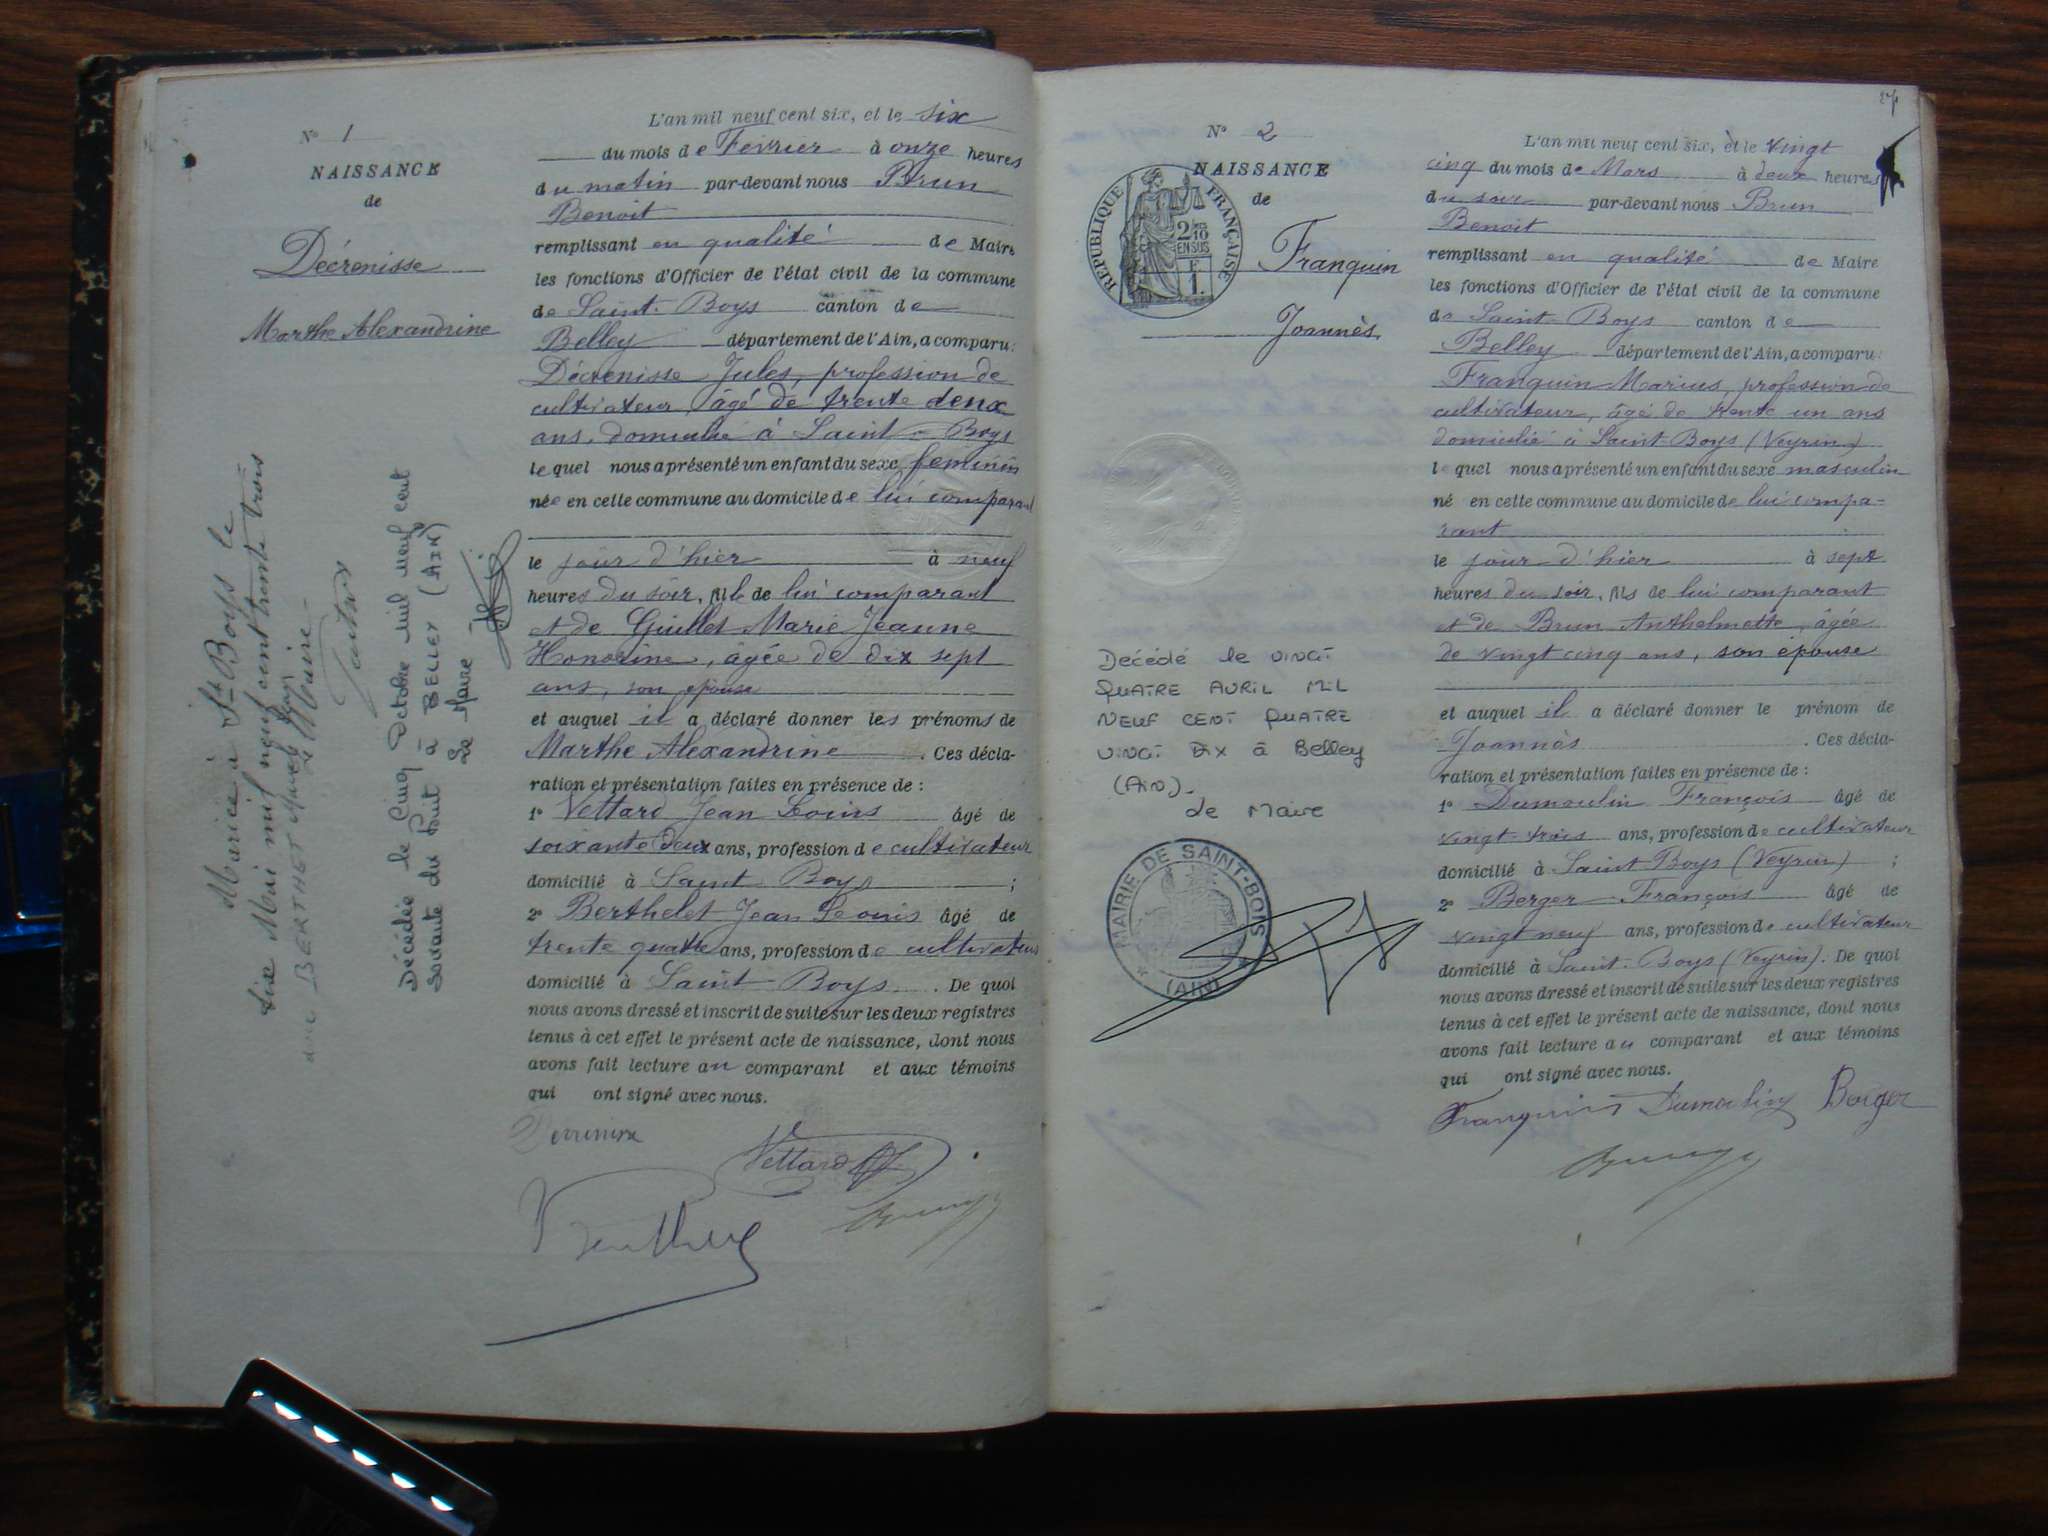 N° 1
NAISSANCE
de
Décrenisse
Marthe Alexandrine
Mariée à St Boys le
six Mai mil neuf cent trente trois
avec BERTHET
Le Maire
Décédée le Cinq Octobre mil neuf cent
soixante dix huit à BELLEY (AIN)
Le Maire
L'an mil neuf cent six, et le six
du mois de Février à onze heures
du matin par-devant nous Brun
Benoit
remplissant en qualité de Maire
les fonctions d'Officier de l'état civil de la commune
de Saint-Boys canton de
Belley département de l'Ain, a comparu:
Décrenisse Jules, profession de
cultivateur, âgé de trente deux
ans, domicilié à Saint-Boys
lequel nous a présenté un enfant du sexe féminin
née en cette commune au domicile de lui comparant
le jour d'hier à neuf
heures du soir, fille de lui comparant
et de Guillet Marie Jeanne
Honorine, âgée de dix sept
ans, son épouse
et auquel il a déclaré donner les prénoms de
Marthe Alexandrine. Ces décla-
ration et présentation faites en présence de :
1° Vettard Jean Louis âgé de
soixante deux ans, profession de cultivateur
domicilié à Saint Boys ;
2° Berthelet Jean Louis âgé de
trente quatre ans, profession de cultivateur
domicilié à Saint-Boys. De quoi
nous avons dressé et inscrit de suite sur les deux registres
tenus à cet effet le présent acte de naissance, dont nous
avons fait lecture au comparant et aux témoins
qui ont signé avec nous.
Vettard
Brun
N° 2
NAISSANCE
de
Franquin
Joannès
RÉPUBLIQUE FRANÇAISE
2/10
EN SUS
F
1.
Décédé le vingt
quatre avril mil
neuf cent quatre
vingt dix à Belley
(Ain).
Le Maire
MAIRIE DE SAINT-BOIS
(AIN)
L'an mil neuf cent six, et le vingt
cinq du mois de Mars à deux heures
du soir par-devant nous Brun
Benoit
remplissant en qualité de Maire
les fonctions d'Officier de l'état civil de la commune
de Saint-Boys canton de
Belley département de l'Ain, a comparu:
Franquin Marius, profession de
cultivateur, âgé de trente un ans
domicilié à Saint-Boys (Veyrin)
lequel nous a présenté un enfant du sexe masculin
né en cette commune au domicile de lui compa-
rant
le jour d'hier à sept
heures du soir, fils de lui comparant
et de Brun Anthelmette, âgée
de vingt cinq ans, son épouse
et auquel il a déclaré donner le prénom de
Joannès. Ces décla-
ration et présentation faites en présence de :
1° Dumoulin François âgé de
vingt-trois ans, profession de cultivateur
domicilié à Saint Boys (Veyrin) ;
2° Berger François âgé de
vingt neuf ans, profession de cultivateur
domicilié à Saint-Boys (Veyrin). De quoi
nous avons dressé et inscrit de suite sur les deux registres
tenus à cet effet le présent acte de naissance, dont nous
avons fait lecture au comparant et aux témoins
qui ont signé avec nous.
Franquin Dumoulin Berger
Brun